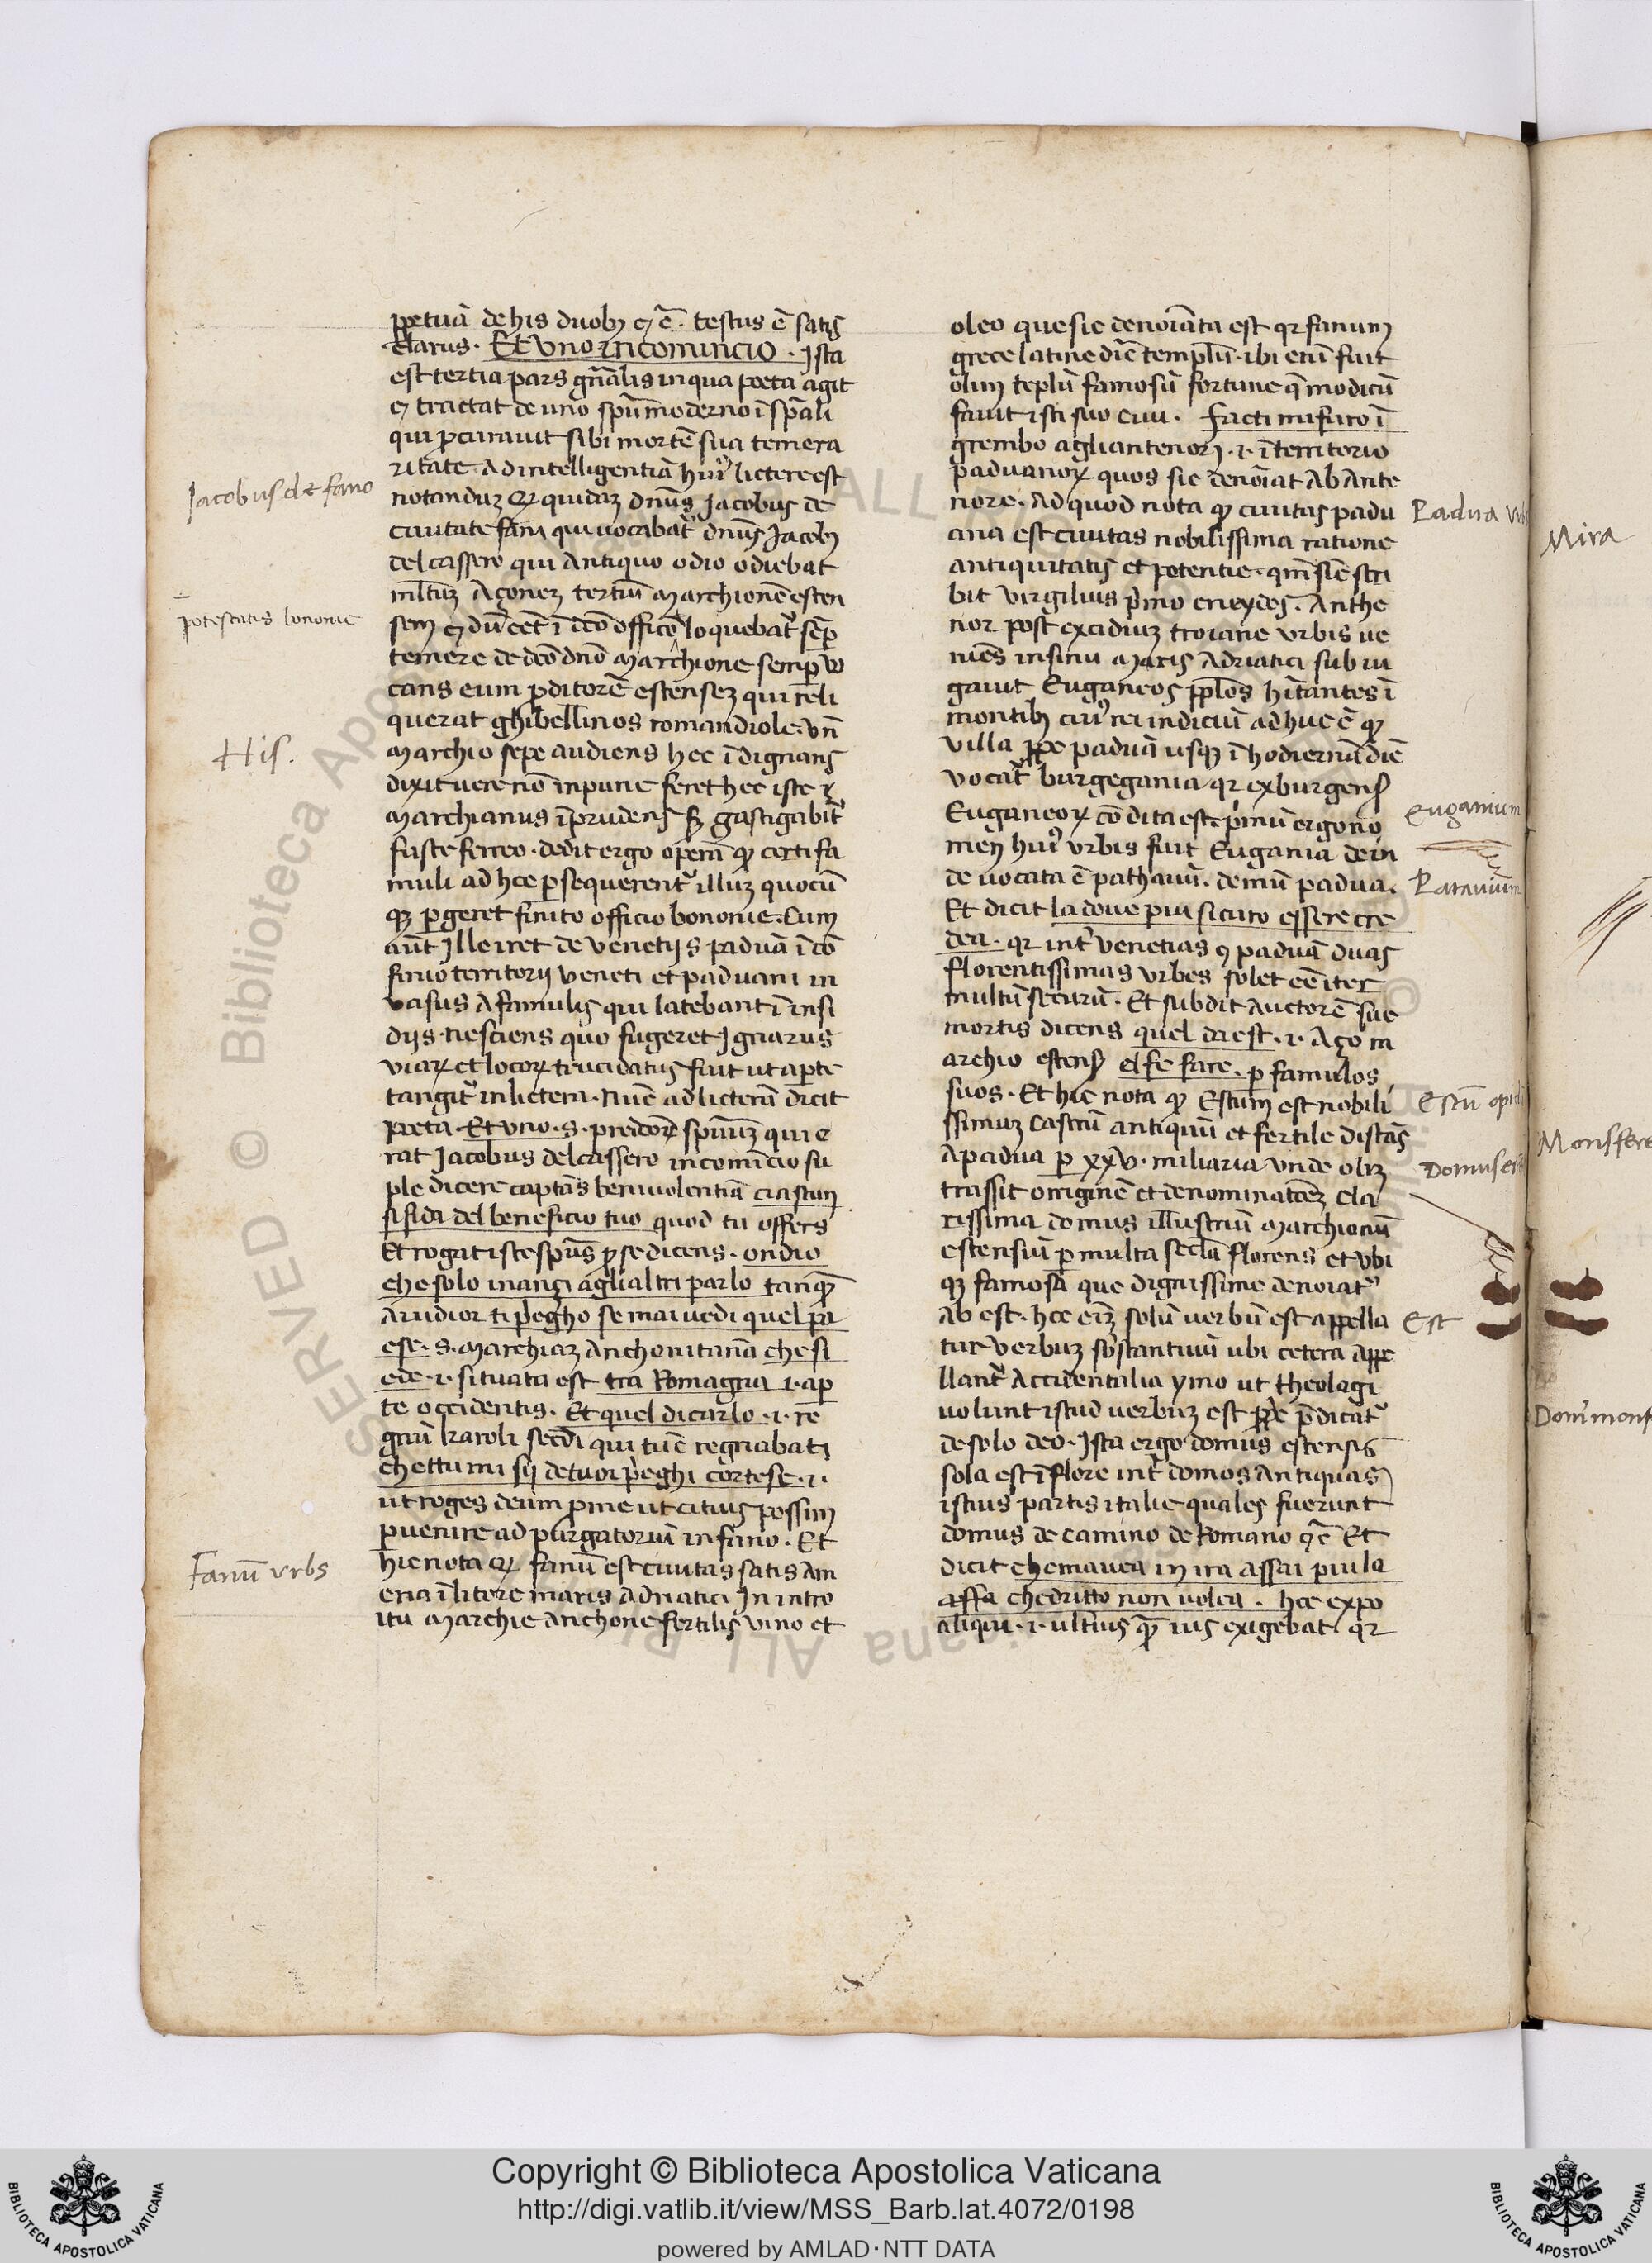 ppetuā de his duobȝ ꝛ c̄. testus ē satis
clarus. Et uno incomincio. Ista
est tertia pars gn̄alis in qua poeta agit
ꝛ tractat de uno spū moderno ī spāli
qui ꝓcurauit sibi mortē sua temera
ritate. Ad intelligentiā huiꝰ lictere est
notanduȝ qꝫ quidaȝ dn̄us Jacobus de
ciuitate fani qui uocabat᷑ dn̄us Jacobȝ
del cassero qui antiquo odio odiebat
mltuȝ Açoneȝ tertiū marchionē esten
sem ꝛ dū eēt ī dc̄o officō loquebat᷑ sēꝑ
temere de dc̄o dn̄o marchione semꝑ vo
cans eum ꝓditorē estenseȝ qui reli
querat ghibellinos romandiole. vn̄
marchio sepe audiens hec īdignans
dixit uere nō inpune feret hec iste
marchianus īprudens sȝ gastigabit᷑
fuste ferreo. dedit ergo operā qꝫ certi fa
muli ad hec ꝑsequerent᷑ illuȝ quocū
qȝ ꝑgeret finito officio bononie. Cum
aūt ille iret de venetijs paduā ī cō
finio territorij veneti et paduani in
uasus a famulis qui latebant ī insi
dijs. nesciens quo fugeret ignarus
uiaꝝ et locoꝝ trucidatus fuit ut aperte
tangit᷑ in lictera. Nūc ad licterā dicit
poeta. Et uno. s. predc̄oꝝ spirituū qui e
rat Jacobus del cassero incomincio su
ple dicere captās beniuolentiā ciascun
si fida del beneficio tuo quod tu offers
Et rogat iste spūs ꝓ se dicens. ondio
che solo inançi agli altri parlo tanqꝫ
audior ti pregho se mai uedi quel pa
ese. s. marchiaȝ anchonitanā che si
ede. i. situata est tra Romagna i. a par
te occidentis. Et quel di carlo. i. re
gnū karoli secdi qui tūc regnabat
che tu mi sij de tuoi preghi cortese. i.
ut roges deum ꝓ me ut citius possim
ꝑuenire ad purgatoriū in fano. Et
hic nota qꝫ fanū est ciuitas satis am
ena ī litore maris adriatici in intro
itu marchie anchone fertilis vino et
oleo que sic denoīata est qꝛ fanum
grece latine dīc templū. ibi enī fuit
olim tēplū famosū fortune q̄ modicū
fauit isti suo ciui. facti mi furo ī
grembo agli antenorj. i. ī territorio
paduanoꝝ quos sic denoīat ab Ante
nore. Ad quod nota qꝫ ciuitas padu
ana est ciuitas nobilissima ratione
antiquitatis et potentie. qm̄ sic̄ scri
bit virgilius primo eneydos. Anthe
nor post excidiuȝ troiane urbis ue
niēs in sinu maris adriatici subiu
gauit Euganeos pplos hītantes ī
montibȝ cuiꝰ rei indiciū adhuc ē qꝫ
villa ꝓpe paduā usqȝ ī hodiernū diē
vocat᷑ burgegania qꝛ ex burgens
Euganeoꝝ cōdita est. primū ergo no
men huiꝰ urbis fuit Eugania dein
de uocata ē pathauū. demū padua.
Et dicit la doue piu sicuro essere cre
dea. qꝛ int᷑ venetias ꝛ paduā duas
florentissimas urbes solet eē iter
multū securū. Et subdit auctorē sue
mortis dicens quel da est. i. Aço m
archio estens el fe fare. ꝑ famulos
suos. Et hic nota qꝫ Estum est nobili
ssimuȝ castrū antiquū et fertile distās
a padua ꝑ xxv. miliaria unde oliȝ
trassit originē et denominatōeȝ cla
rissima domus illustriū marchionū
estensiū ꝑ multa secla florens et ubi
qȝ famosa que dignissime denoīat᷑
ab est. hoc eniȝ solū uerbū est appella
tur uerbuȝ sb̄stantiuū ubi cetera appe
llant᷑ accidentalia ymo ut theologi
uolunt istud uerbuȝ est ꝓpe p̄dicat᷑
de solo deo. Ista ergo domus estensis
sola est ī flore int᷑ domos antiquas
istius partis italie quales fuerunt
domus de camino de Romano ꝛ c̄ Et
dicit che mauea in ira assai piu la
assa che dritto non uolea. hoc expo
aliqui. i. ultius qꝫ ius exigebat qꝛ
Jacobus de fano
potestatis bononie
His.
Fanū vrbs
Padua vrbs
Euganium
Patauium
Estū opidū
Domus est
Est
Mira
Monsfere
Dom' monsf
© Biblioteca Apostolica Vaticana ALL RIGHTS RESERVED
Copyright © Biblioteca Apostolica Vaticana
http://digi.vatlib.it/view/MSS_Barb.lat.4072/0198
powered by AMLAD·NTT DATA
BIBLIOTECA APOSTOLICA VATICANA
BIBLIOTECA APOSTOLICA VATICANA